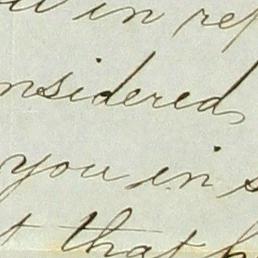 in rep
nsidered
you in s
t that h